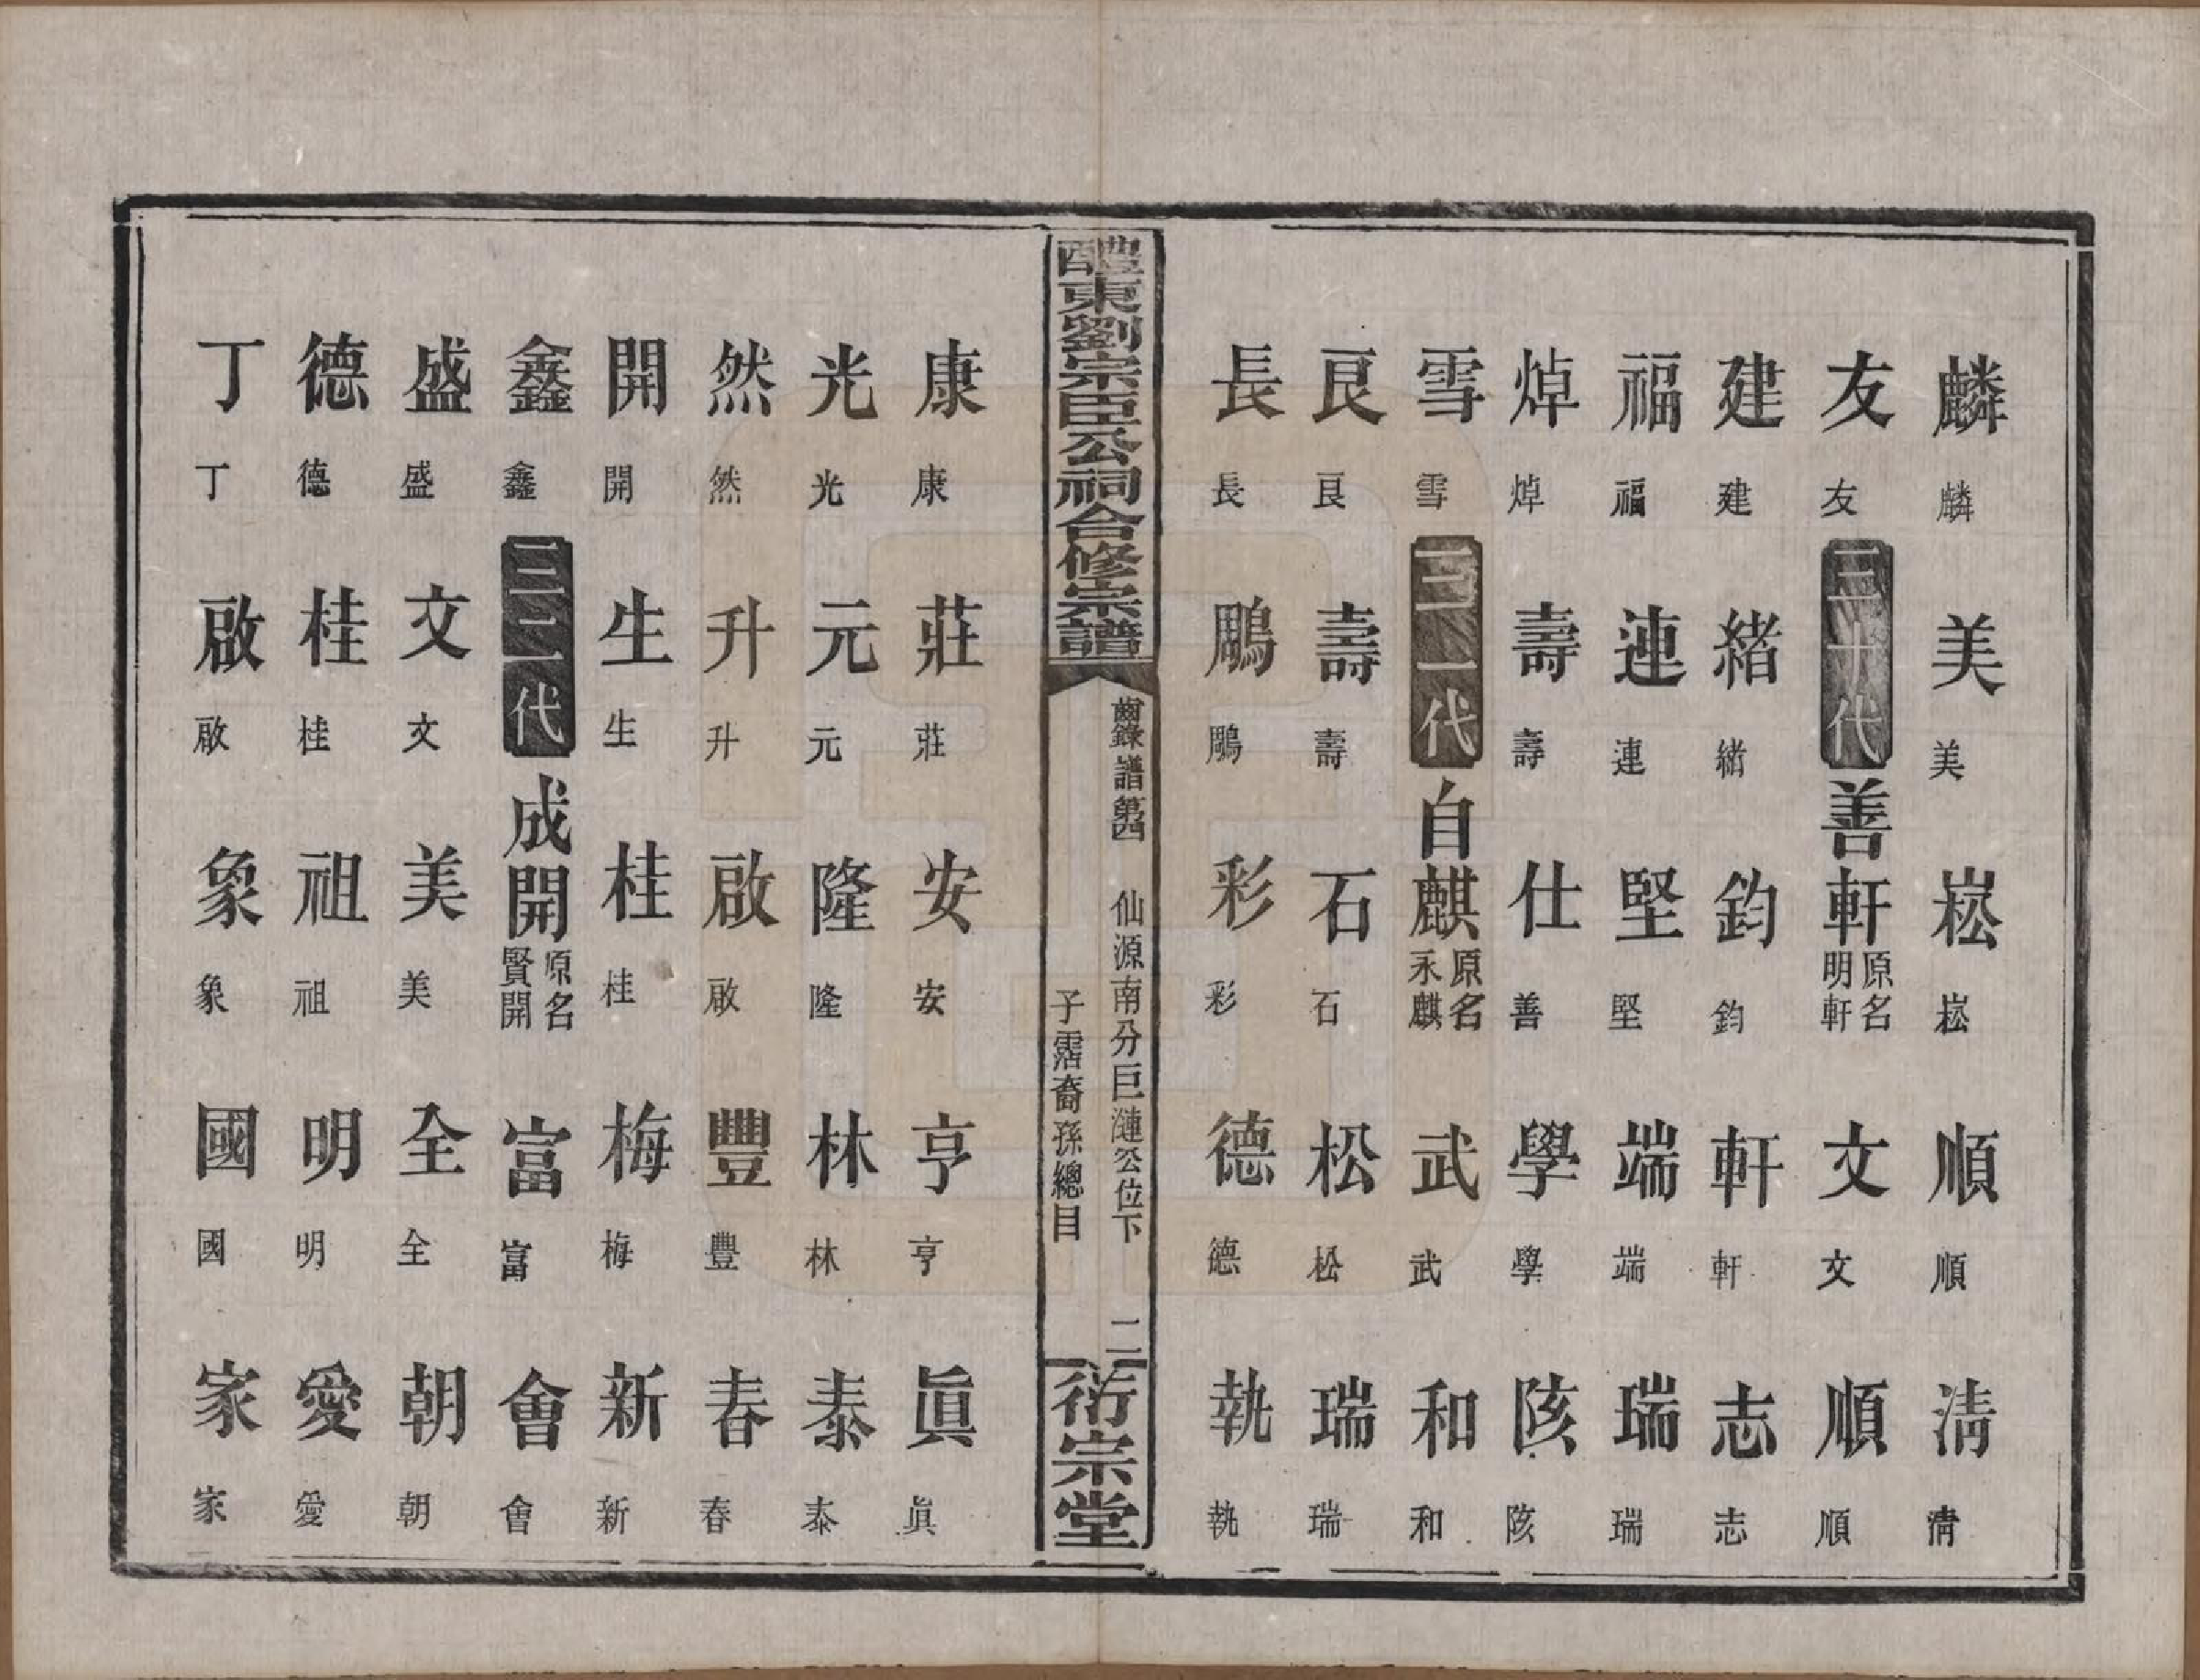 麟麟 美美 崧崧 順順 清清
友友 三十代 善軒 原名明軒 文文 順順
建建 緒緒 鈞鈞 軒軒 志志
福福 連連 堅堅 端端 瑞瑞
焯焯 壽壽 仕善 學學 陔陔
雪雪 三一代 自麒 原名永麒 武武 和和
艮艮 壽壽 石石 松松 瑞瑞
長長 鵰鵰 彩彩 德德 執執
醴東劉宗臣公祠合修宗譜
齒錄譜第四 仙源南分巨漣公位下
子霑裔孫總目
二
衍宗堂
康康 莊莊 安安 亨亨 眞眞
光光 元元 隆隆 林林 泰泰
然然 升升 啟啟 豐豐 春春
開開 生生 桂桂 梅梅 新新
鑫鑫 三二代 成開 原名賢開 富富 會會
盛盛 文文 美美 全全 朝朝
德德 桂桂 祖祖 明明 愛愛
丁丁 啟啟 象象 國國 家家